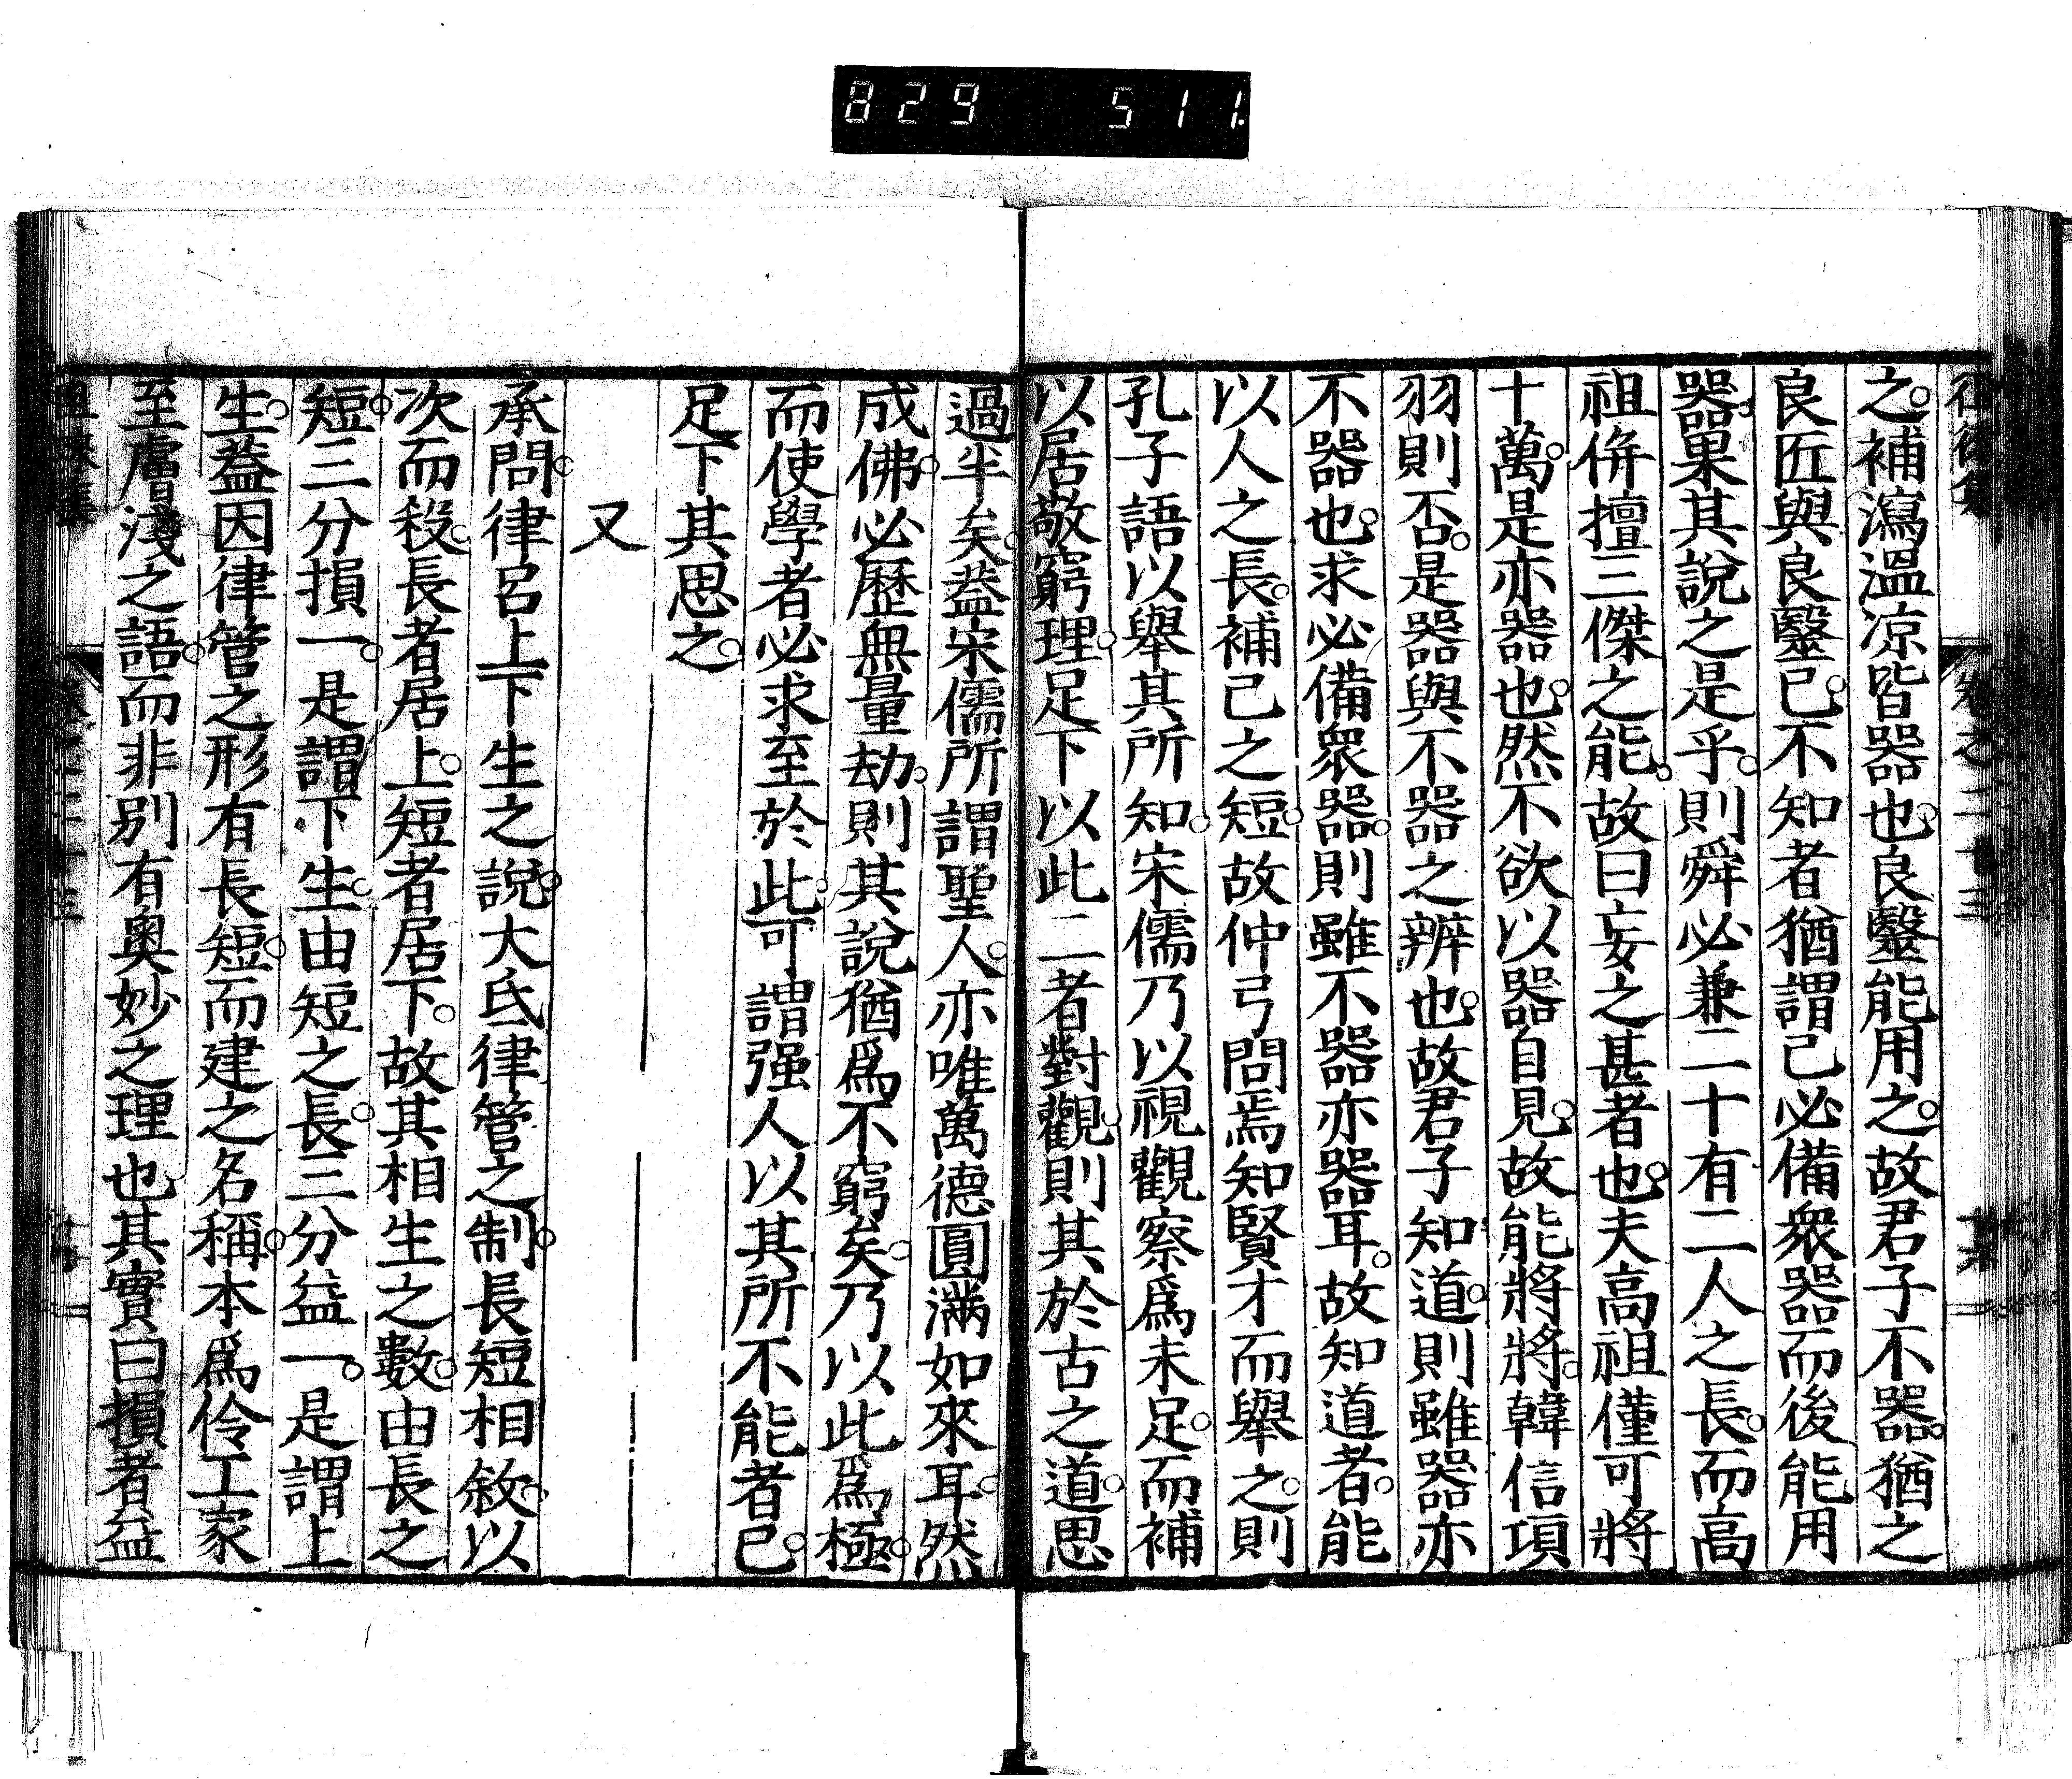 829 511
之。補瀉溫涼皆器也。良醫能用之。故君子不器。猶之
良匠與良醫已。不知者猶謂己必備衆器而後能用
器。果其說之是乎。則舜必兼二十有二人之長。而高
祖併擅三傑之能。故曰妄之甚者也。夫高祖僅可將
十萬。是亦器也。然不欲以器自見。故能將將。韓信項
羽則否。是器與不器之辨也。故君子知道。則雖器亦
不器也。求必備衆器。則雖不器亦器耳。故知道者。能
以人之長。補己之短。故仲弓問焉知賢才而舉之。則
孔子語以舉其所知。宋儒乃以視觀察爲未足。而補
以居敬窮理。足下以此二者對觀。則其於古之道。思
過半矣。蓋宋儒所謂聖人。亦唯萬德圓滿如來耳。然
成佛。必歷無量劫。則其說猶爲不窮矣。乃以此爲極。
而使學者必求至於此。可謂强人以其所不能者已。
足下其思之。
又
承問。律呂上下生之說。大氐律管之制。長短相敘。以
次而殺。長者居上。短者居下。故其相生之數。由長之
短。三分損一。是謂下生。由短之長。三分益一。是謂上
生。蓋因律管之形有長短。而建之名稱。本爲伶工家
至膚淺之語。而非別有奧妙之理也。其實曰損者益